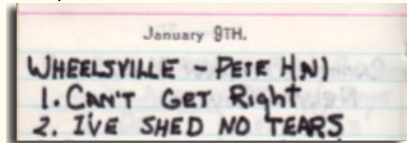 January 9TH.
WHEELSVILLE - PETE H(N)
1. CAN'T GET RIGHT
2. I'VE SHED NO TEARS